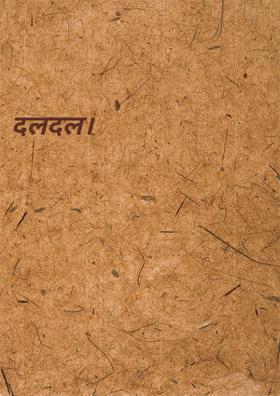 दलदल।